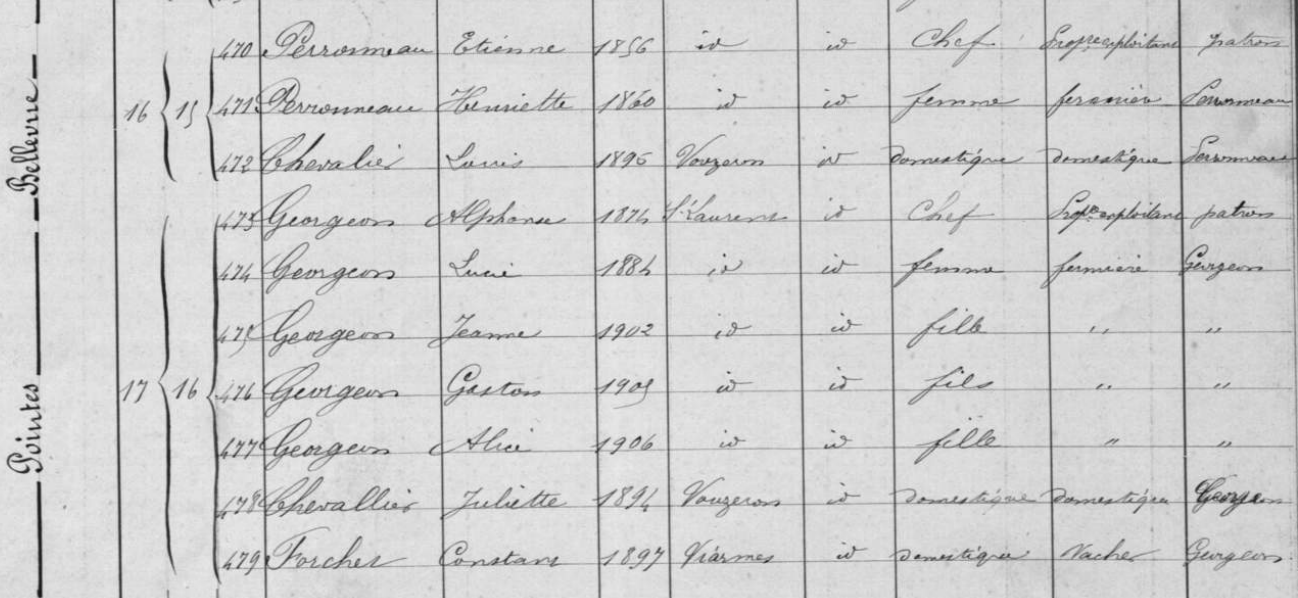 Bellevue
16 15 470 Perronneau Etienne 1856 id id Chef Propre exploitant patron
471 Perronneau Henriette 1860 id id femme fermière Perronneau
472 Chevalier Louis 1895 Vouzeron id domestique domestique Perronneau
Pointes
17 16 473 Georgeon Alphonse 1874 St Laurent id Chef Propre exploitant patron
474 Georgeon Lucie 1884 id id femme fermière Georgeon
475 Georgeon Jeanne 1902 id id fille " "
476 Georgeon Gaston 1905 id id fils " "
477 Georgeon Alice 1906 id id fille " "
478 Chevallier Juliette 1894 Vouzeron id domestique domestique Georgeon
479 Forchet Constant 1897 Viarmes id domestique Vacher Georgeon